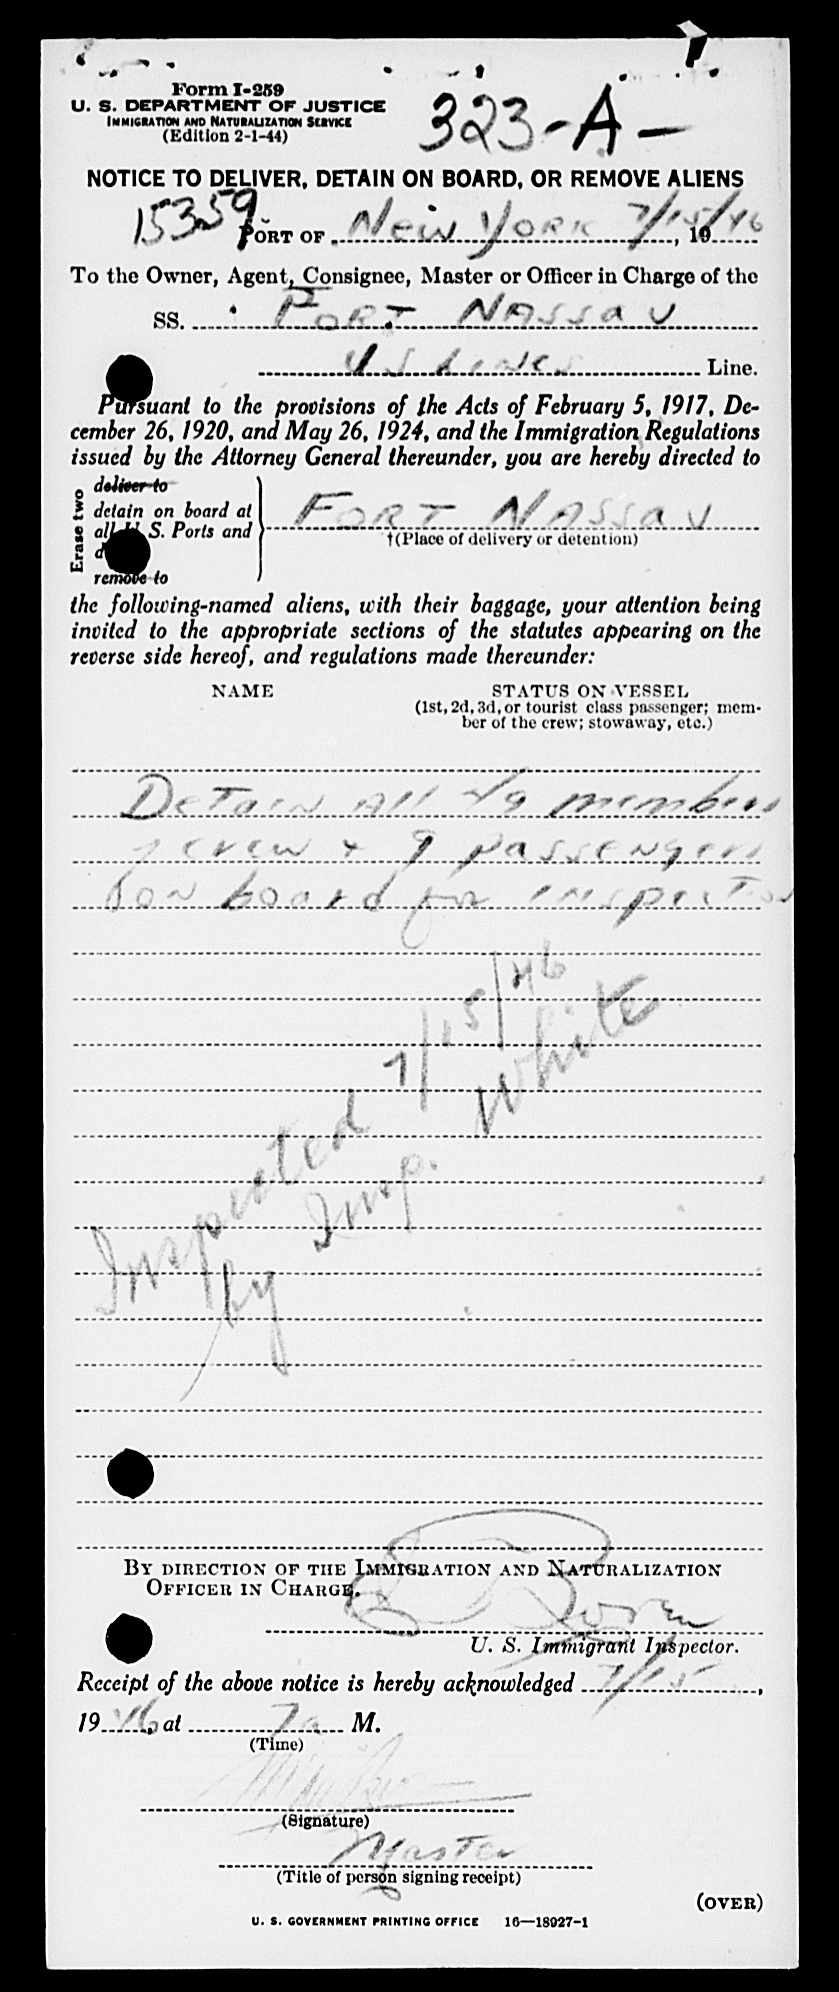 Form I-259
U. S. DEPARTMENT OF JUSTICE
IMMIGRATION AND NATURALIZATION SERVICE
(Edition 2-1-44)
323-A-
NOTICE TO DELIVER, DETAIN ON BOARD, OR REMOVE ALIENS
15359
PORT OF New York 7/15/46, 19
To the Owner, Agent, Consignee, Master or Officer in Charge of the
SS. Fort Nassau
US Lines Line.
Pursuant to the provisions of the Acts of February 5, 1917, De-
cember 26, 1920, and May 26, 1924, and the Immigration Regulations
issued by the Attorney General thereunder, you are hereby directed to
Erase two
deliver to
detain on board at
all U. S. Ports and
remove to
Fort Nassau
†(Place of delivery or detention)
the following-named aliens, with their baggage, your attention being
invited to the appropriate sections of the statutes appearing on the
reverse side hereof, and regulations made thereunder:
NAME
STATUS ON VESSEL
(1st, 2d, 3d, or tourist class passenger; mem-
ber of the crew; stowaway, etc.)
Detain All 49 members
crew + 9 passengers
on board for inspection
Inspected 7/15/46
by Insp. White
BY DIRECTION OF THE IMMIGRATION AND NATURALIZATION
OFFICER IN CHARGE.
U. S. Immigrant Inspector.
Receipt of the above notice is hereby acknowledged 7/15,
19 46, at 7a M.
(Time)
(Signature)
Master
(Title of person signing receipt)
(OVER)
U. S. GOVERNMENT PRINTING OFFICE 16—18927-1